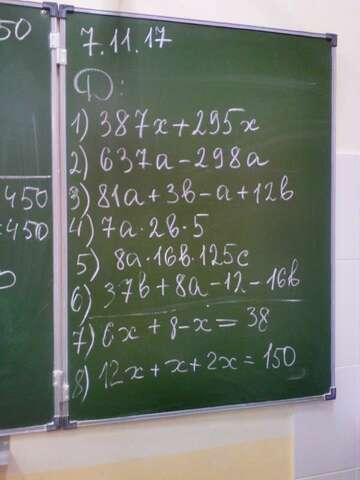 50
450
450
7.11.17
Д:
1) 387x+295x
2) 637a-298a
3) 81a+3b-a+12b
4) 7a·2b·5
5) 8a·16b·125c
6) 37b+8a-12-16b
7) 6x+8-x=38
8) 12x+x+2x=150